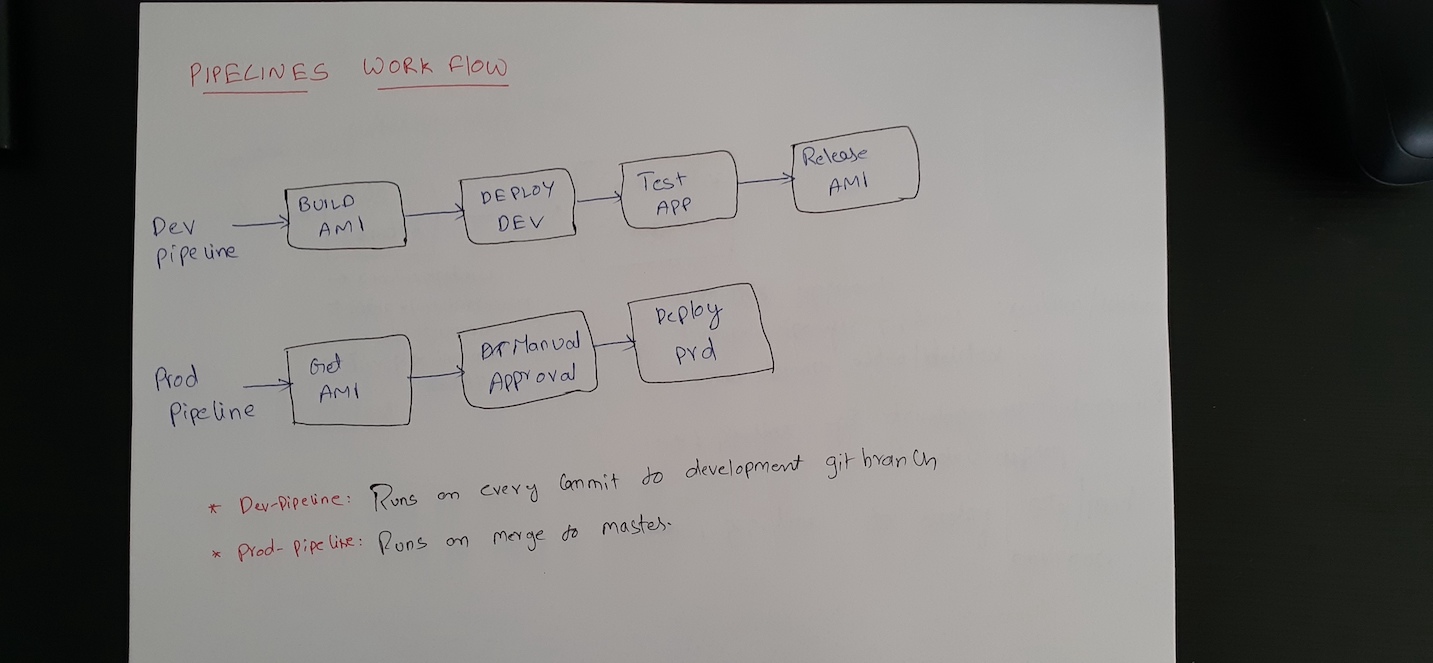 PIPELINES WORK FLOW
Dev
pipeline
BUILD
AMI
DEPLOY
DEV
Test
APP
Release
AMI
Prod
Pipeline
Get
AMI
Manual
Approval
Deploy
prd
* Dev-Pipeline: Runs on every Commit to development git branch
* Prod-Pipeline: Runs on merge to master.